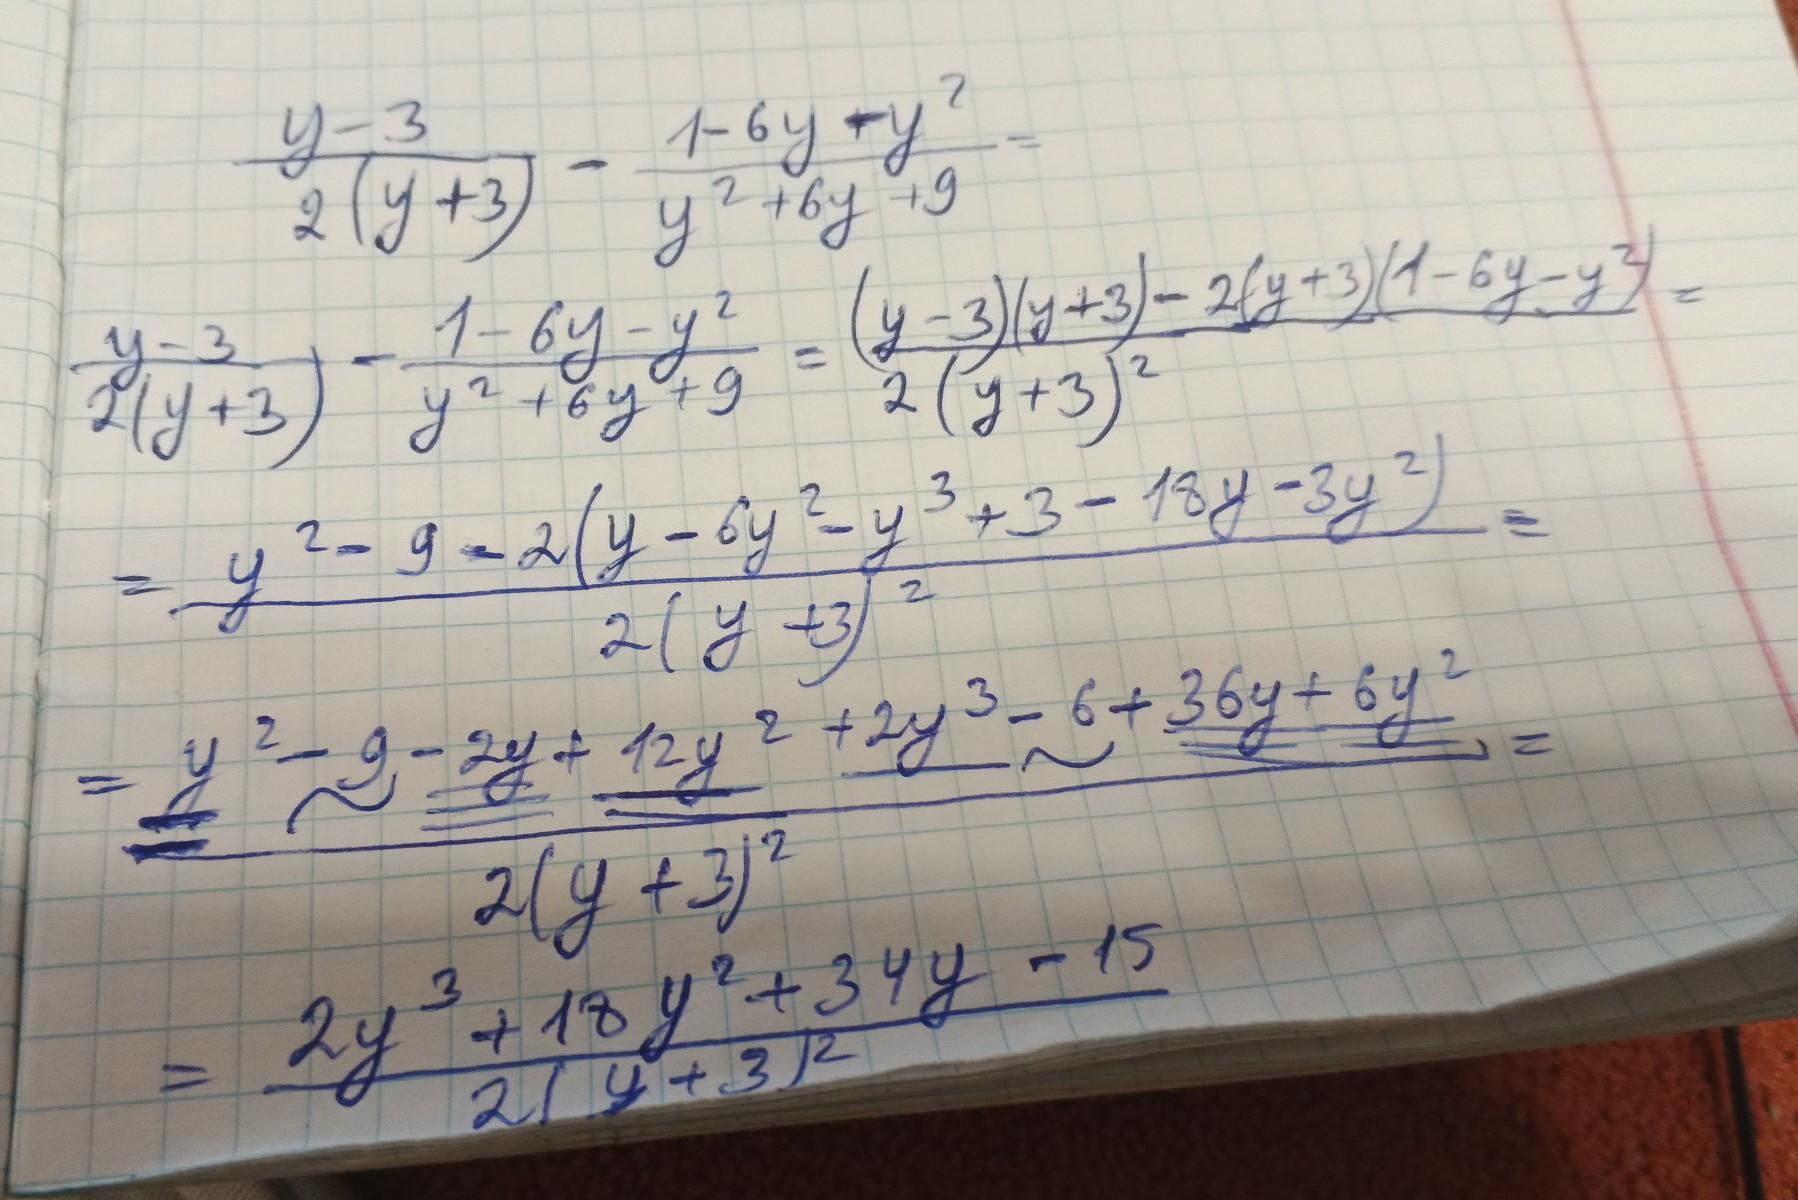 (y-3)/(2(y+3)) - (1-6y-y²)/(y²+6y+9) =
(y-3)/(2(y+3)) - (1-6y-y²)/(y²+6y+9) = ((y-3)(y+3)-2(y+3)(1-6y-y²))/(2(y+3)²) =
= (y²-9-2(y-6y²-y³+3-18y-3y²))/(2(y+3)²) =
= (y²-9-2y+12y²+2y³-6+36y+6y²)/(2(y+3)²) =
= (2y³+18y²+34y-15)/(2(y+3)²)